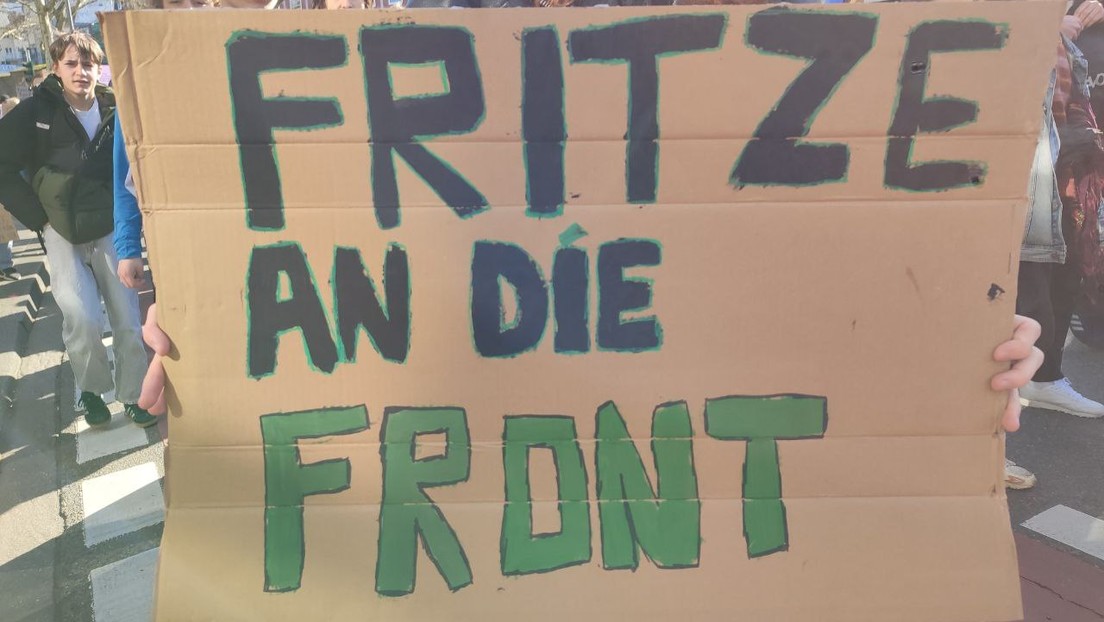 FRITZE
AN DIE
FRONT